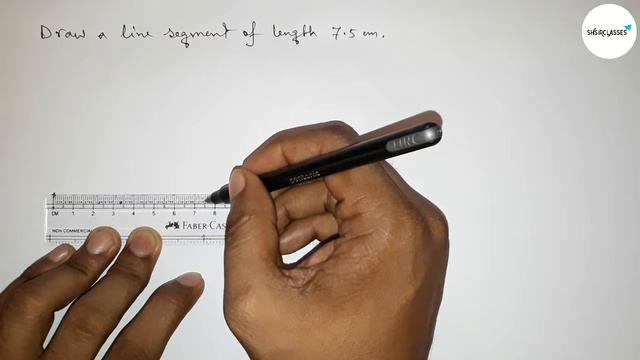 Draw a line segment of length 7.5 cm.
SHSIRCLASSES
CM 1 2 3 4 5 6 7 8
NON COMMERCIAL
FABER-CAS